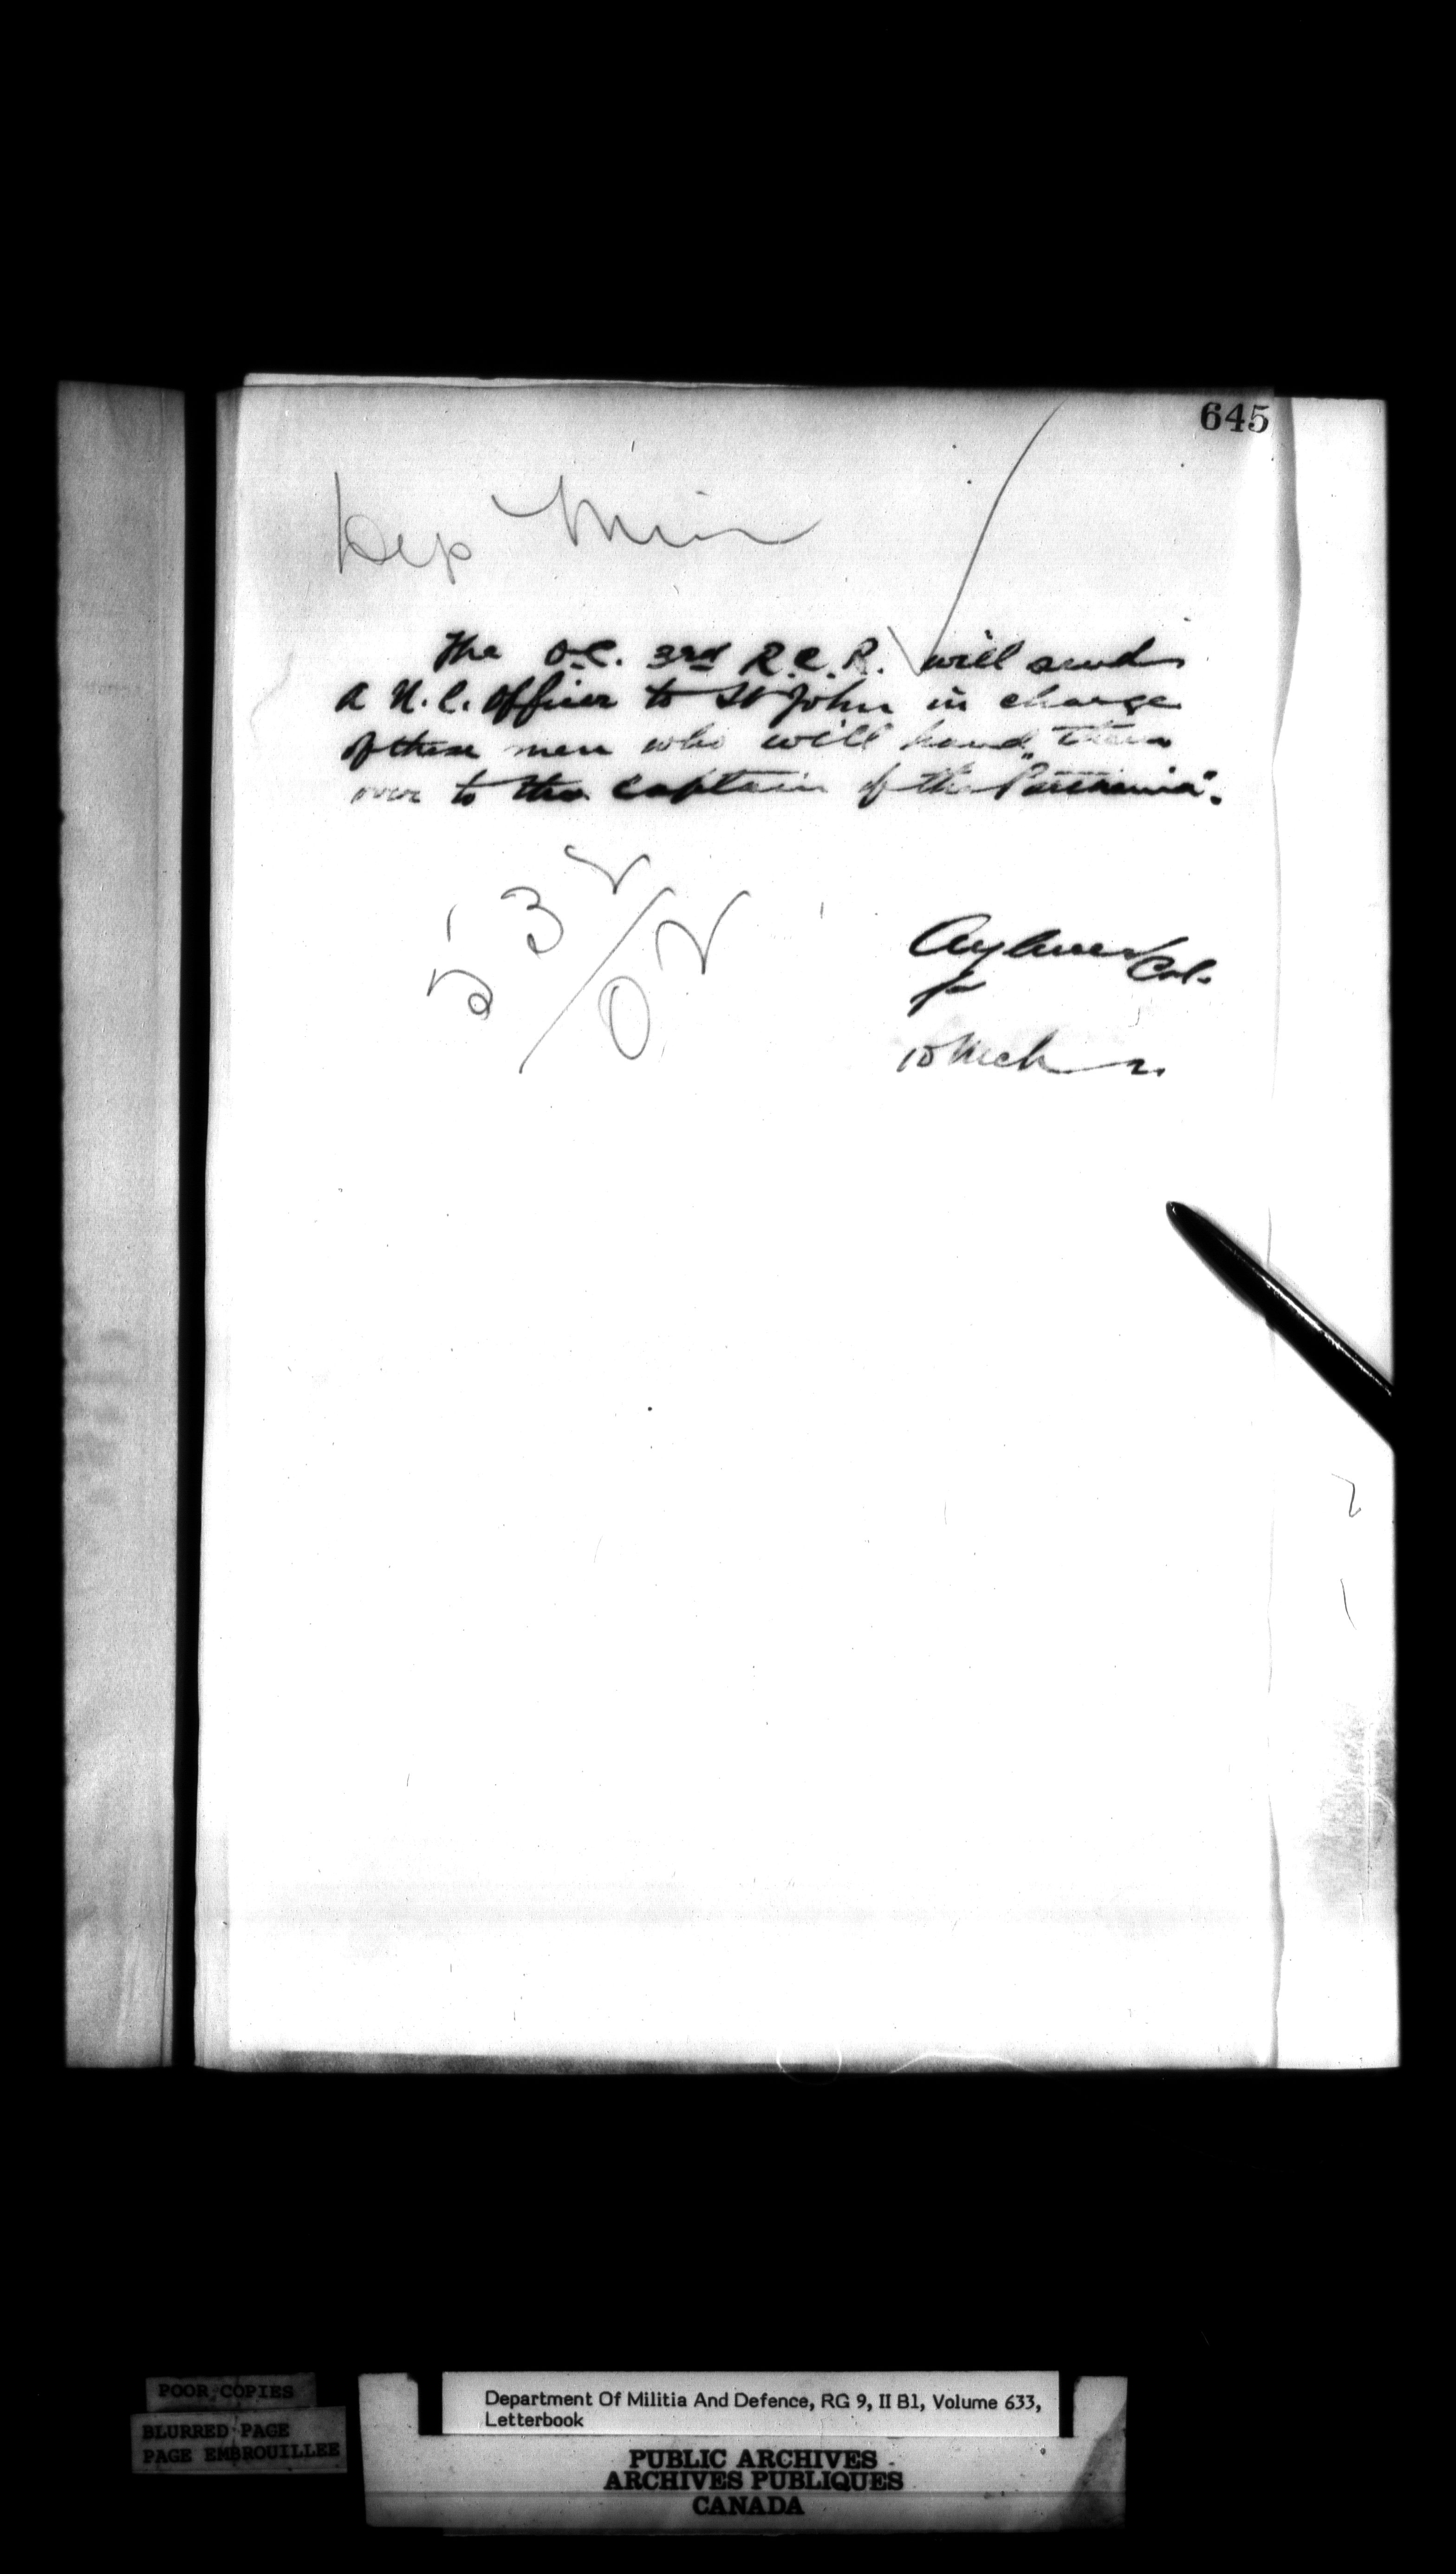 645
Dep Min
The O.C. 3rd R.C.R. will send
a N.C. Officer to St John in charge
of these men who will hand them
over to the Captain of the "Parthenia".
532/02
Aylmer Col.
for
10 Mch 2.
POOR COPIES
BLURRED PAGE
PAGE EMBROUILLEE
Department Of Militia And Defence, RG 9, II B1, Volume 633,
Letterbook
PUBLIC ARCHIVES
ARCHIVES PUBLIQUES
CANADA